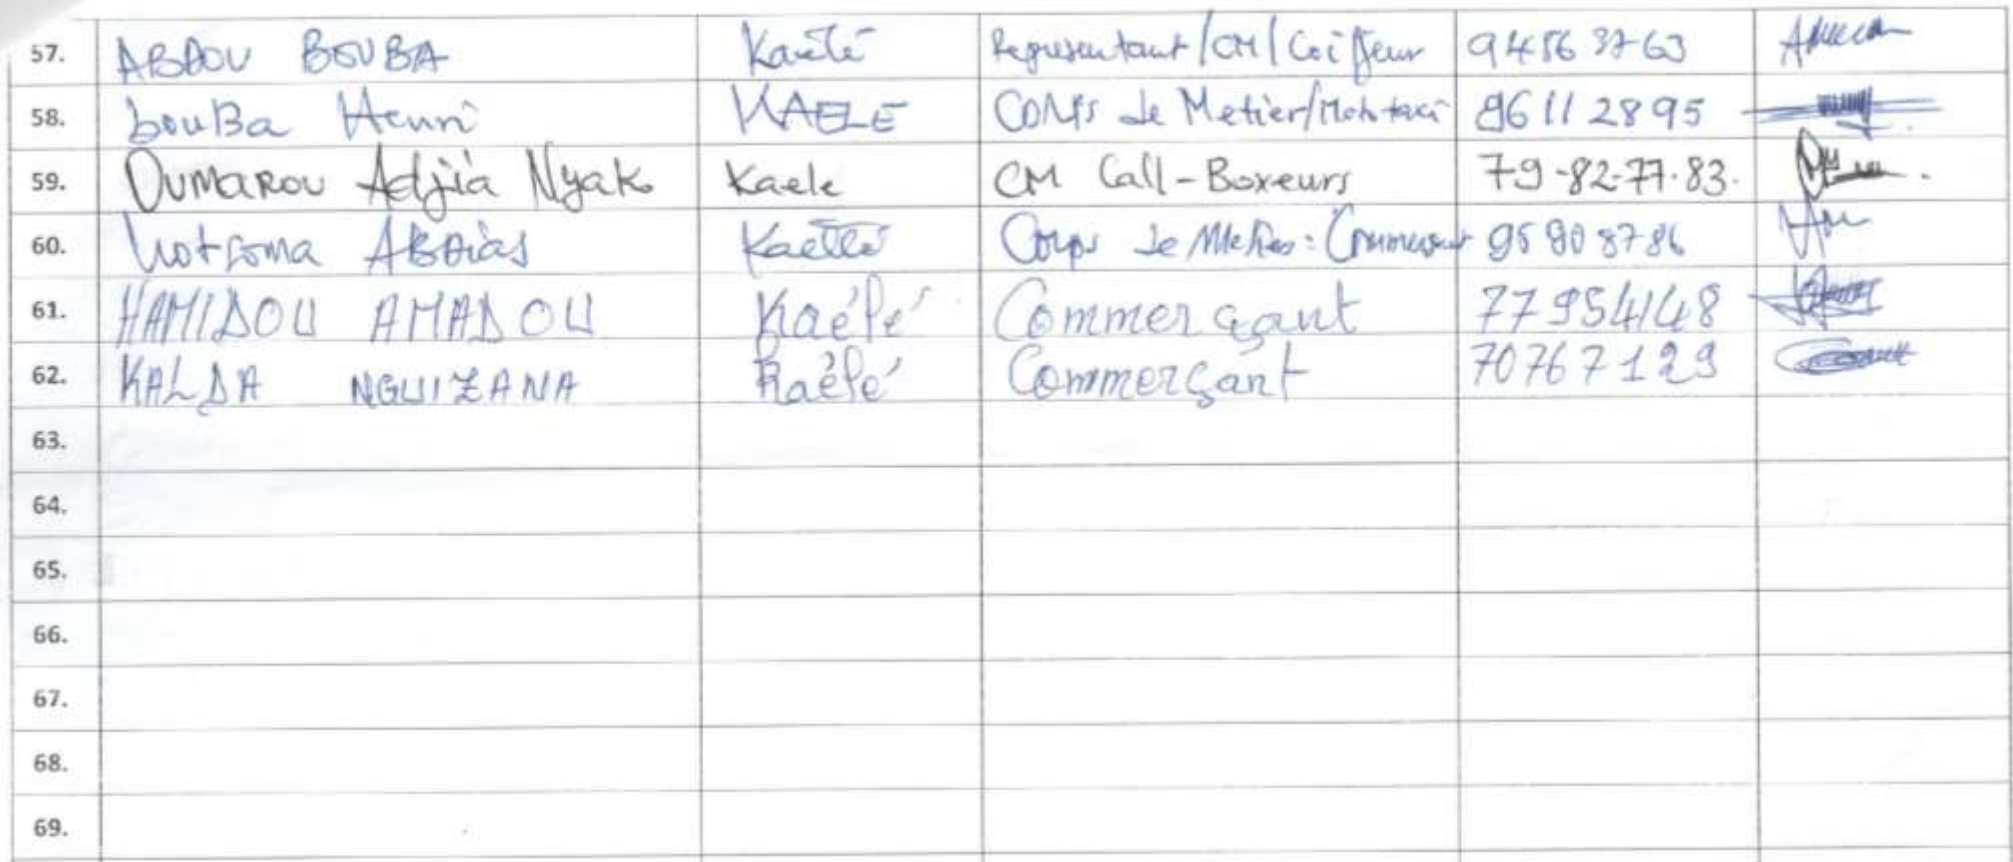 57. ABDOU BOUBA Kaélé Representant/CM/Coiffeur 94563763
58. bouBa Henri KAELE CORPS de Metier/Mototaxi 96112895
59. OUMAROU Adjia Nyako Kaele CM Call-Boxeurs 79-82-77-83.
60. Kaélé Corps de Metier: Commerçant 95908786
61. HAMIDOU AMADOU Kaélé Commerçant 77954148
62. KALDA NGUIZANA Kaélé Commerçant 70767129
63.
64.
65.
66.
67.
68.
69.